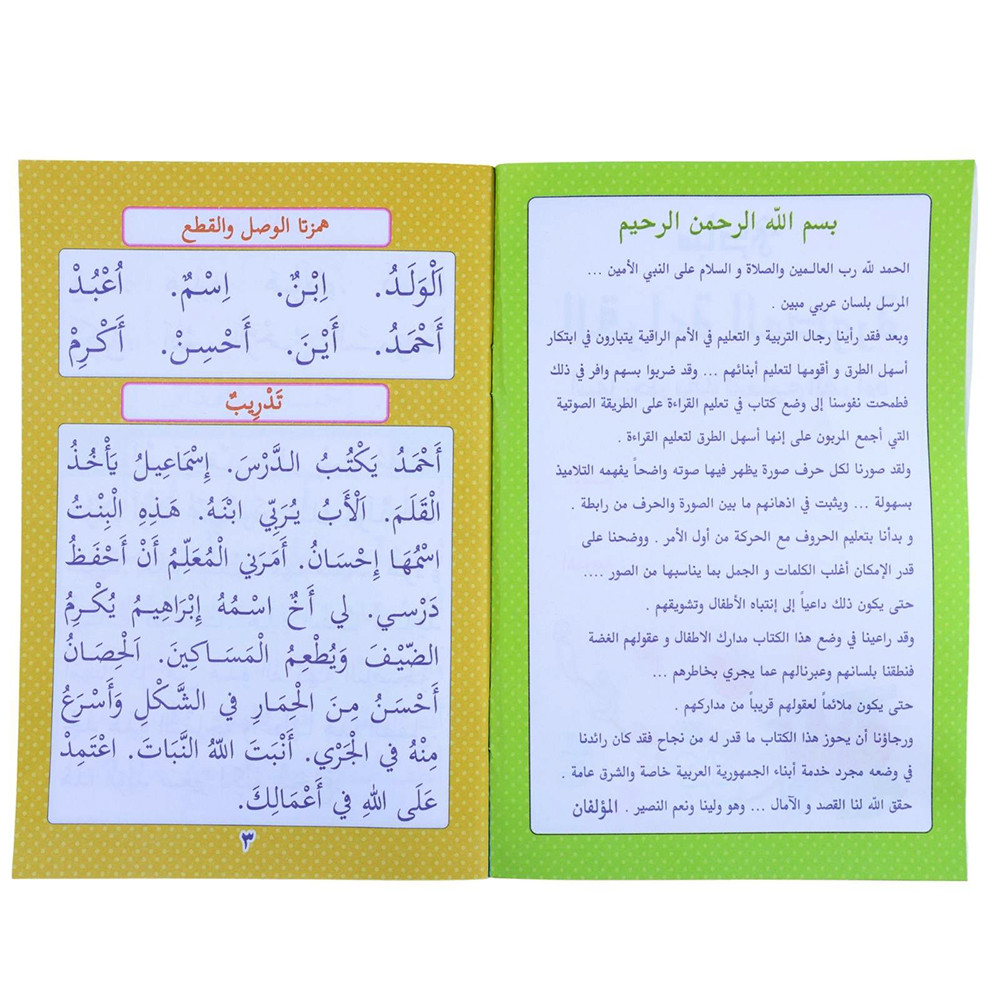 بسم الله الرحمن الرحيم
الحمد لله رب العالمين والصلاة و السلام على النبي الأمين ...
المرسل بلسان عربي مبين .
وبعد فقد رأينا رجال التربية و التعليم في الأمم الراقية يتبارون في ابتكار
أسهل الطرق و أقومها لتعليم أبنائهم ... وقد ضربوا بسهم وافر في ذلك
فطمحت نفوسنا إلى وضع كتاب في تعليم القراءة على الطريقة الصوتية
التي أجمع المربون على إنها أسهل الطرق لتعليم القراءة .
ولقد صورنا لكل حرف صورة يظهر فيها صوته واضحاً يفهمه التلاميذ
بسهولة ... ويثبت في اذهانهم ما بين الصورة والحرف من رابطة .
و بدأنا بتعليم الحروف مع الحركة من أول الأمر . ووضحنا على
قدر الإمكان أغلب الكلمات و الجمل بما يناسبها من الصور ....
حتى يكون ذلك داعياً إلى إنتباه الأطفال وتشويقهم .
وقد راعينا في وضع هذا الكتاب مدارك الاطفال و عقولهم الغضة
فنطقنا بلسانهم وعبرنالهم عما يجري بخاطرهم ...
حتى يكون ملائماً لعقولهم قريباً من مداركهم .
ورجاؤنا أن يحوز هذا الكتاب ما قدر له من نجاح فقد كان رائدنا
في وضعه مجرد خدمة أبناء الجمهورية العربية خاصة والشرق عامة .
حقق الله لنا القصد و الآمال ... وهو ولينا ونعم النصير . المؤلفان
همزتا الوصل والقطع
اَلْوَلَدُ. اِبْنٌ. اِسْمٌ. اُعْبُدْ
أَحْمَدُ. أَيْنَ. أَحْسِنْ. أَكْرِمْ
تَدْرِيبٌ
أَحْمَدُ يَكْتُبُ الدَّرْسَ. إِسْمَاعِيلُ يَأْخُذُ
الْقَلَمَ. اَلْأَبُ يُرَبِّي ابْنَهُ. هَذِهِ الْبِنْتُ
اسْمُهَا إِحْسَانُ. أَمَرَنِي الْمُعَلِّمُ أَنْ أَحْفَظُ
دَرْسي. لي أَخٌ اسْمُهُ إِبْرَاهِيمُ يُكْرِمُ
الضَّيْفَ وَيُطْعِمُ الْمَسَاكِينَ. اَلْحِصَانُ
أَحْسَنُ مِنَ الْحِمَارِ في الشَّكْلِ وَأَسْرَعُ
مِنْهُ في الْجَرْي. أَنْبَتَ اللهُ النَّبَاتَ. اعْتَمِدْ
عَلَى اللهِ في أَعْمَالِكَ.
٣